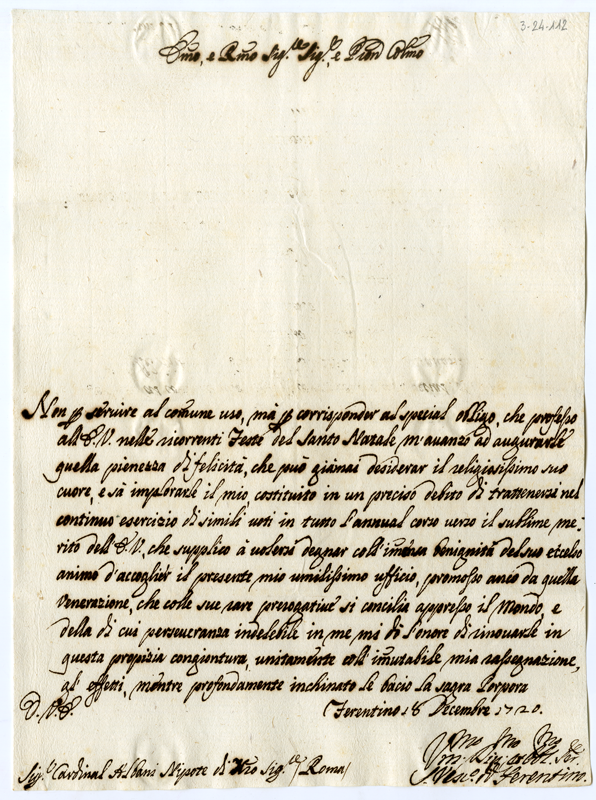 3-24-112
Emo, e Rmo Sig.re Sig.re, e Pron Colmo
Non p servire al comune uso, mà p corrisponder al special obligo, che professo
all'E.V. nelle ricorrenti Feste del Santo Natale m'auanzo ad augurarle
quella pienezza di felicità, che può giamai desiderar il religiosissimo suo
cuore, e sà implorarle il mio, costituito in un preciso debito di trattenersi nel
continuo esercizio di simili voti in tutto l'annual corzo verzo il sublime me:
rito dell'E.V., che supplico à volersi degnar coll'imensa benignità del suo eccelso
animo d'accoglier il presente mio umilissimo ufficio, promosso anco da quella
Venerazione, che colle sue rare prerogative si concilia appresso il Mondo, e
della di cui perseveranza indelebile in me mi dò l'onore di rinouarle in
questa propizia congiontura, unitamente coll'imutabile mia rassegnazione,
gl'effetti, mentre profondamente inchinato le bacio la sagra Porpora
D. V. E. Ferentino 18 Decembre 1720.
Sig.r Cardinal Albani Nipote di Nro Sig.re / Roma /
Vmo
Ser.
Vesc.o di Ferentino.